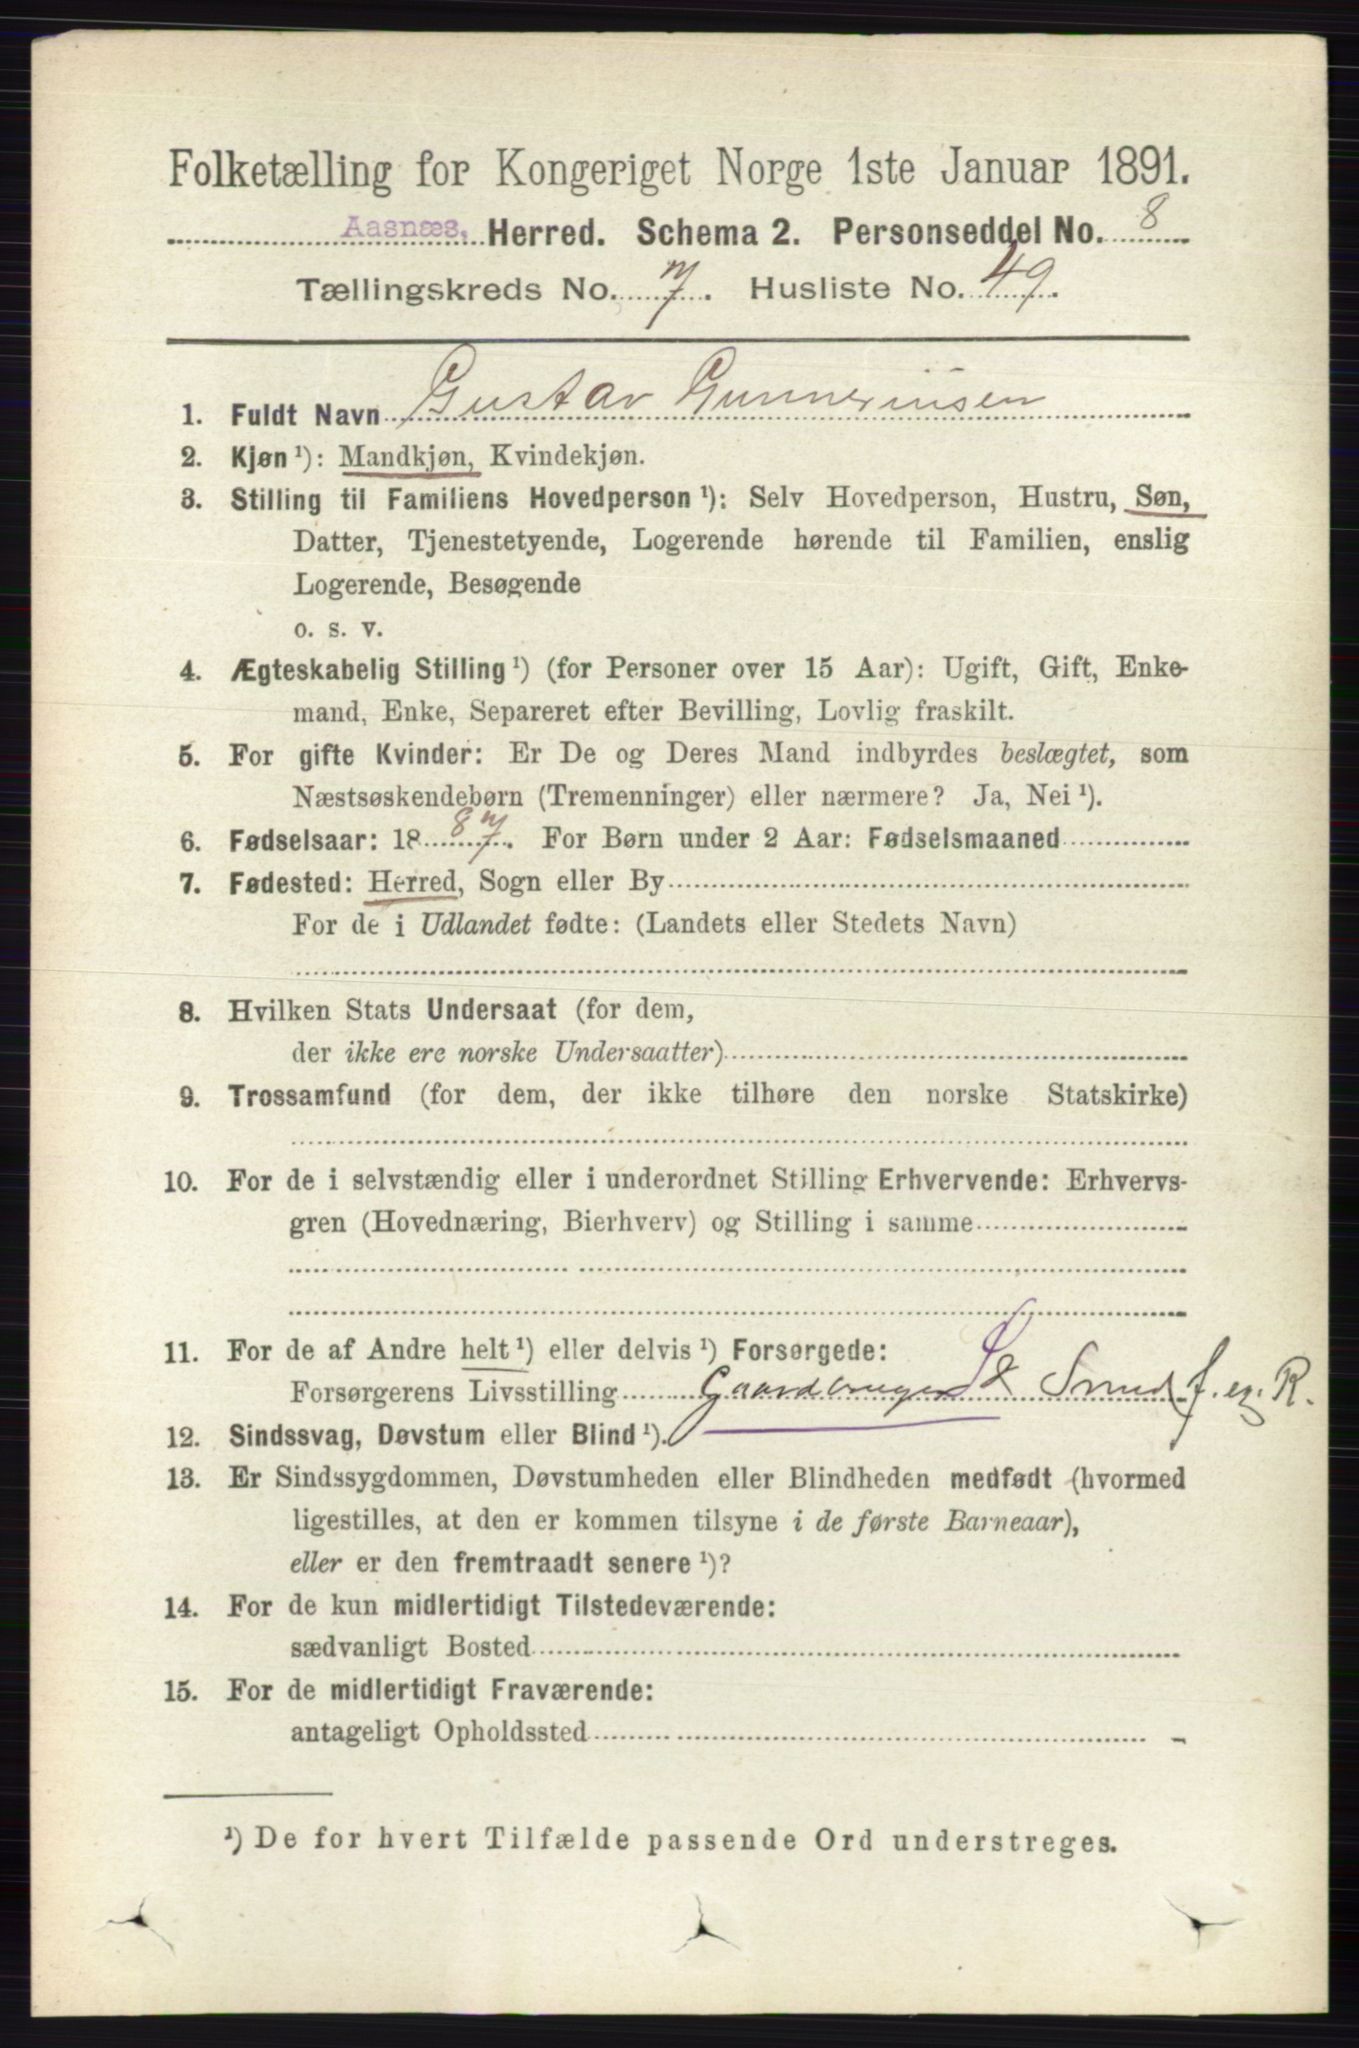 Folketælling for Kongeriget Norge 1ste Januar 1891.
Aasnæs, Herred. Schema 2. Personseddel No. 8
Tællingskreds No. 7. Husliste No. 49.
1. Fuldt Navn Gustav Gunneriusen
2. Kjøn ¹): Mandkjøn, Kvindekjøn.
3. Stilling til Familiens Hovedperson ¹): Selv Hovedperson, Hustru, Søn,
Datter, Tjenestetyende, Logerende hørende til Familien, enslig
Logerende, Besøgende
o. s. v.
4. Ægteskabelig Stilling ¹) (for Personer over 15 Aar): Ugift, Gift, Enke-
mand, Enke, Separeret efter Bevilling, Lovlig fraskilt.
5. For gifte Kvinder: Er De og Deres Mand indbyrdes beslægtet, som
Næstsøskendebørn (Tremenninger) eller nærmere? Ja, Nei ¹).
6. Fødselsaar: 1887. For Børn under 2 Aar: Fødselsmaaned
7. Fødested: Herred, Sogn eller By
For de i Udlandet fødte: (Landets eller Stedets Navn)
8. Hvilken Stats Undersaat (for dem,
der ikke ere norske Undersaatter)
9. Trossamfund (for dem, der ikke tilhøre den norske Statskirke)
10. For de i selvstændig eller i underordnet Stilling Erhvervende: Erhvervs-
gren (Hovednæring, Bierhverv) og Stilling i samme
11. For de af Andre helt ¹) eller delvis ¹) Forsørgede:
Forsørgerens Livsstilling Gaardbruger & Smed f. eg. R.
12. Sindssvag, Døvstum eller Blind ¹).
13. Er Sindssygdommen, Døvstumheden eller Blindheden medfødt (hvormed
ligestilles, at den er kommen tilsyne i de første Barneaar),
eller er den fremtraadt senere ¹)?
14. For de kun midlertidigt Tilstedeværende:
sædvanligt Bosted
15. For de midlertidigt Fraværende:
antageligt Opholdssted
¹) De for hvert Tilfælde passende Ord understreges.